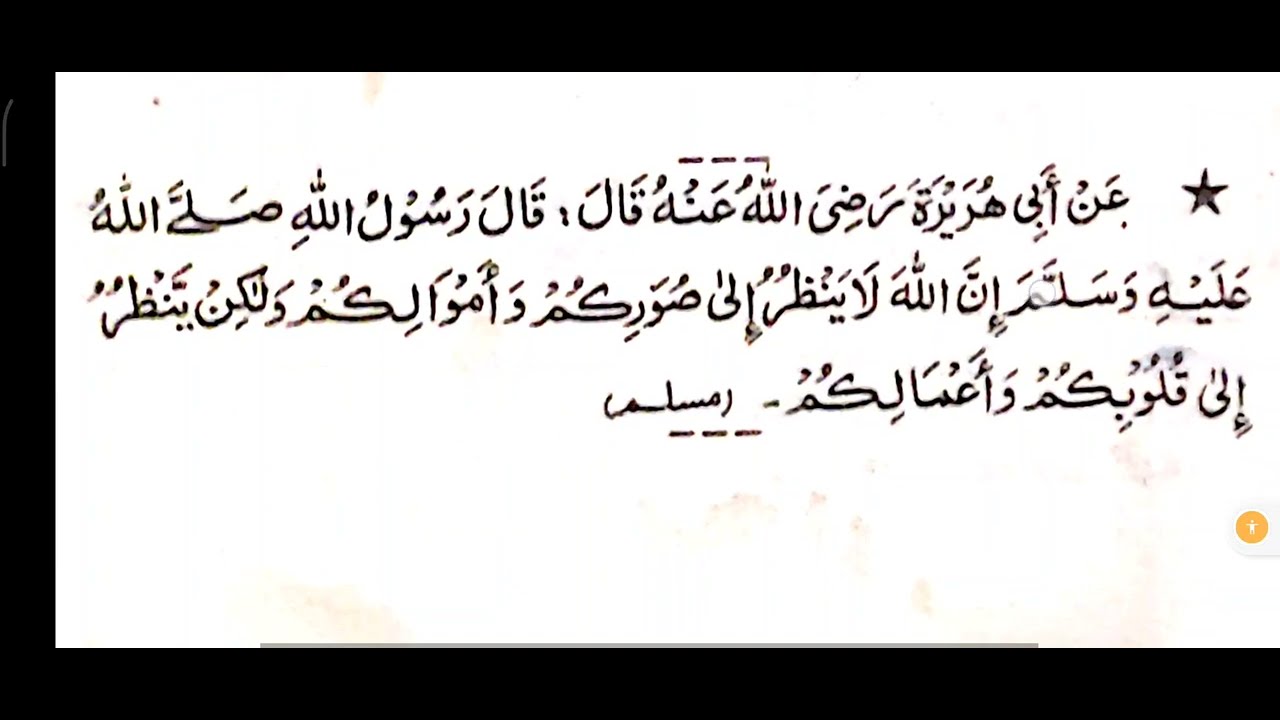 ★ عَنْ أَبِي هُرَيْرَةَ رَضِيَ اللّٰهُ عَنْهُ قَالَ : قَالَ رَسُوْلُ اللّٰهِ صَلَّے اللّٰهُ
عَلَيْهِ وَسَلَّمَ إِنَّ اللّٰهَ لَا يَنْظُرُ إِلىٰ صُوَرِكُمْ وَأَمْوَالِكُمْ وَلٰكِنْ يَّنْظُرُ
إِلىٰ قُلُوْبِكُمْ وَأَعْمَالِكُمْ ۔ (مسلم)